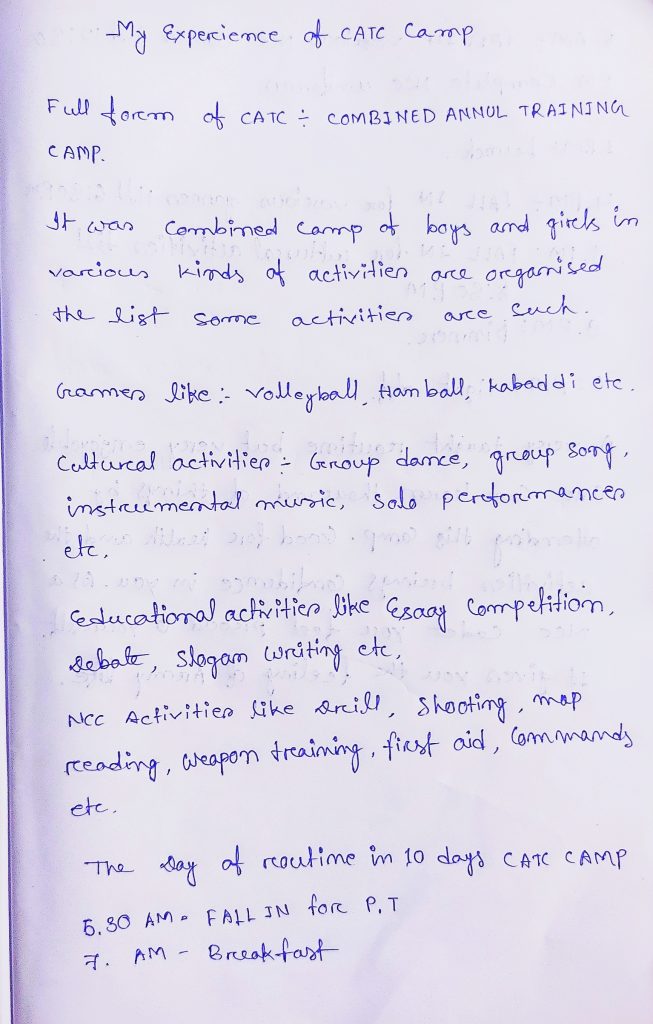 My Experience of CATC Camp
Full form of CATC ÷ COMBINED ANNUL TRAINING
CAMP.
It was combined camp of boys and girls in
various kinds of activities are organised
the list some activities are such.
Games like :- Volleyball, Hamball, Kabaddi etc.
Cultural activities - Group dance, group song,
instrumental music, Solo performances
etc,
Educational activities like Esaay Competition,
Debate, Slogan writing etc,
NCC Activities like Drill, Shooting, map
reading, weapon training, first aid, Commands
etc.
The Day of routine in 10 days CATC CAMP
5.30 AM - FALL IN for P.T
7. AM - Breakfast